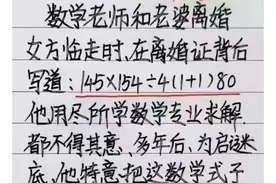 数学老师和老婆离婚
女方临走时,在离婚证背后
写道:145×154÷4(1+1)80
他用尽所学数学专业求解.
都不得其意,多年后,为启谜
底,他特意把这数学式子